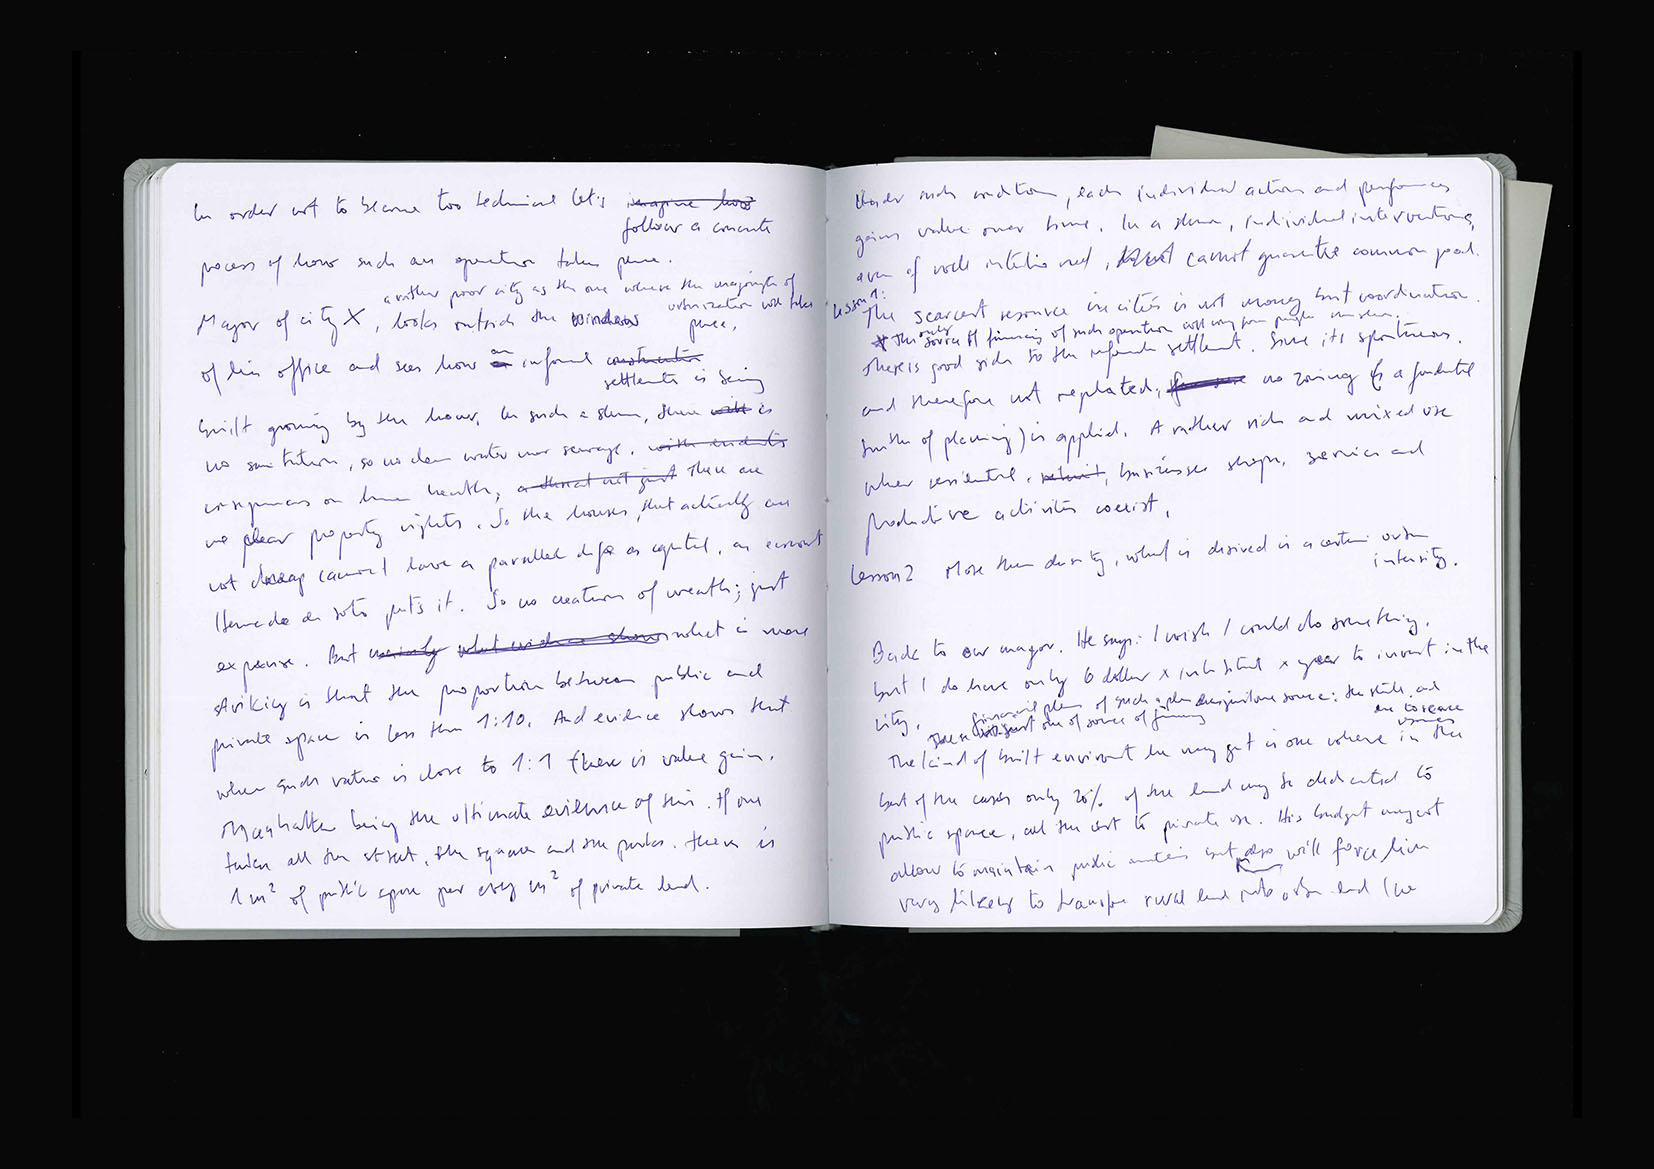 In order not to become too technical let's imagine how
follow a concrete
process of how such an operation takes place.
a rather poor city as the one where the majority of
urbanization will take
place,
Mayor of city X, looks outside the window
of his office and sees how an informal construction
settlements is being
built growing by the hour. In such a slum, there is
no sanitation, so no clean water nor sewage,
consequences on human health, a threat not just There are
no clear property rights. So the houses, that actually are
not cheap cannot have a parallel life as capital, as economist
Hernando de Soto puts it. So no creation of wealth; just
expense. But what evidence shows what is more
striking is that the proportion between public and
private space is less than 1:10. And evidence shows that
when such ratio is close to 1:1 there is value gain.
Manhattan being the ultimate evidence of this. If one
takes all the street, the square and the parks. there is
1 m² of public space per every m² of private land.
Under such condition, each individual action and performances
gains value over time. In a slum, individual interventions,
even if well intentioned, cannot guarantee common good.
Lesson 1:
The scarcest resource in cities is not money but coordination.
The only source of financing of such operation will
There is good side to the informal settlement. Since it is spontaneous.
and therefore not regulated, no zoning (a
of planning) is applied. A rather rich and mixed use
where residential, businesses shops, services and
productive activities coexist.
Lesson 2 More than density, what is desired is a certain urban
intensity.
Back to our mayor. He says: I wish I could do something,
but I do have only 6 dollar x inhabitant x year to invest in the
city.
financial plan of such a plan one source: the state, and
There is just one of source of financing
The kind of built environment he may get is one where in the
best of the cases only 20% of the land may be dedicated to
public space, all the rest to private use. His budget may not
allow to maintain public but also will force him
very likely to transform rural land into urban land (we